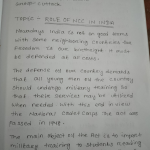 TOPIC - ROLE OF NCC IN INDIA
Nowadays India is not on good terms
with some neighbouring countries. Our
freedom is our birthright & must
be defended at all cost.
The defence of our country demands
that all young men of our country
should undergo military training so
that their services may be utilised
when needed. With this end in view
the National Cadet Corps the NCC was
started in 1948.
The main object of the NCC is to impart
military training to students reading